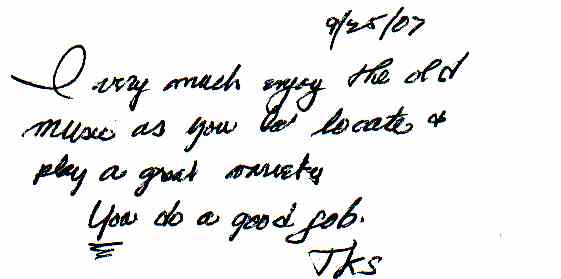 9/25/07
I very much enjoy the old
music as you do locate &
play a great variety
You do a good job.
Tks